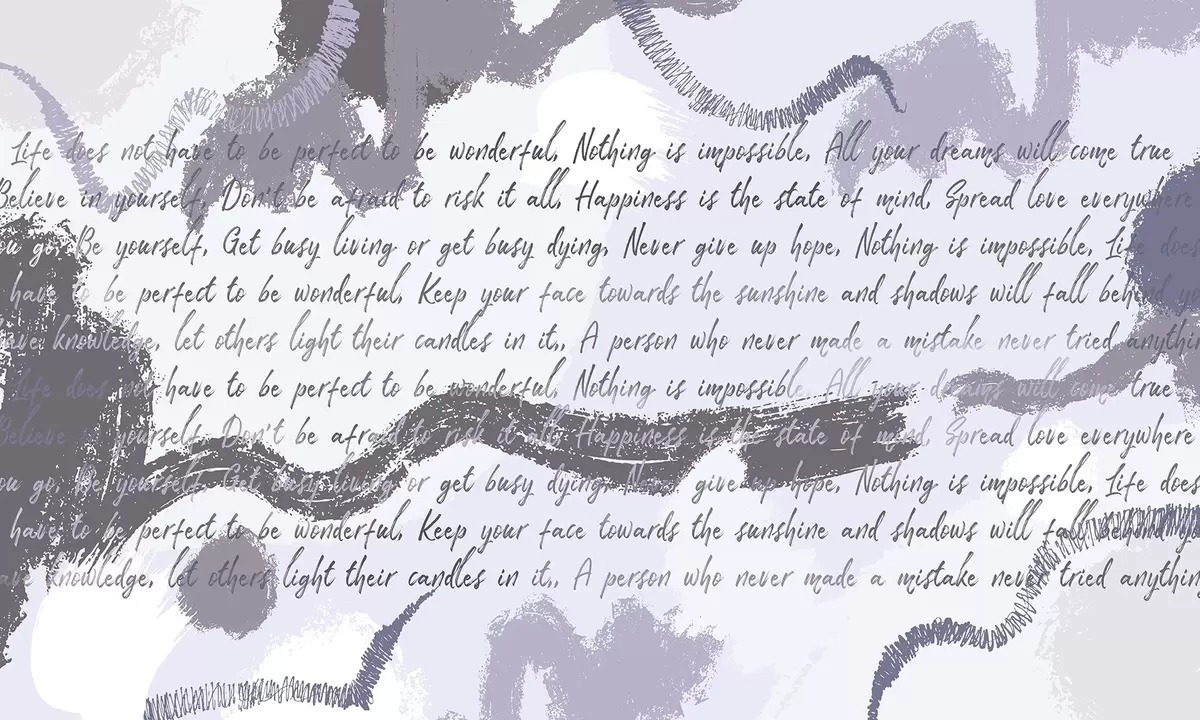 Life does not have to be perfect to be wonderful, Nothing is impossible, All your dreams will come true
Believe in yourself, Don't be afraid to risk it all, Happiness is the state of mind, Spread love everywhere
ou go, Be yourself, Get busy living or get busy dying, Never give up hope, Nothing is impossible, Life does
have to be perfect to be wonderful, Keep your face towards the sunshine and shadows will fall behind
ave knowledge, let others light their candles in it,, A person who never made a mistake never tried anythin
Life does not have to be perfect to be wonderful, Nothing is impossible, All your dreams will come true
Believe in yourself, Don't be afraid to risk it all, Happiness is the state of mind, Spread love everywhere
ou go, Be yourself, Get busy living or get busy dying, Never give up hope, Nothing is impossible, Life does
have to be perfect to be wonderful, Keep your face towards the sunshine and shadows will fall behind
ave knowledge, let others light their candles in it,, A person who never made a mistake never tried anythin